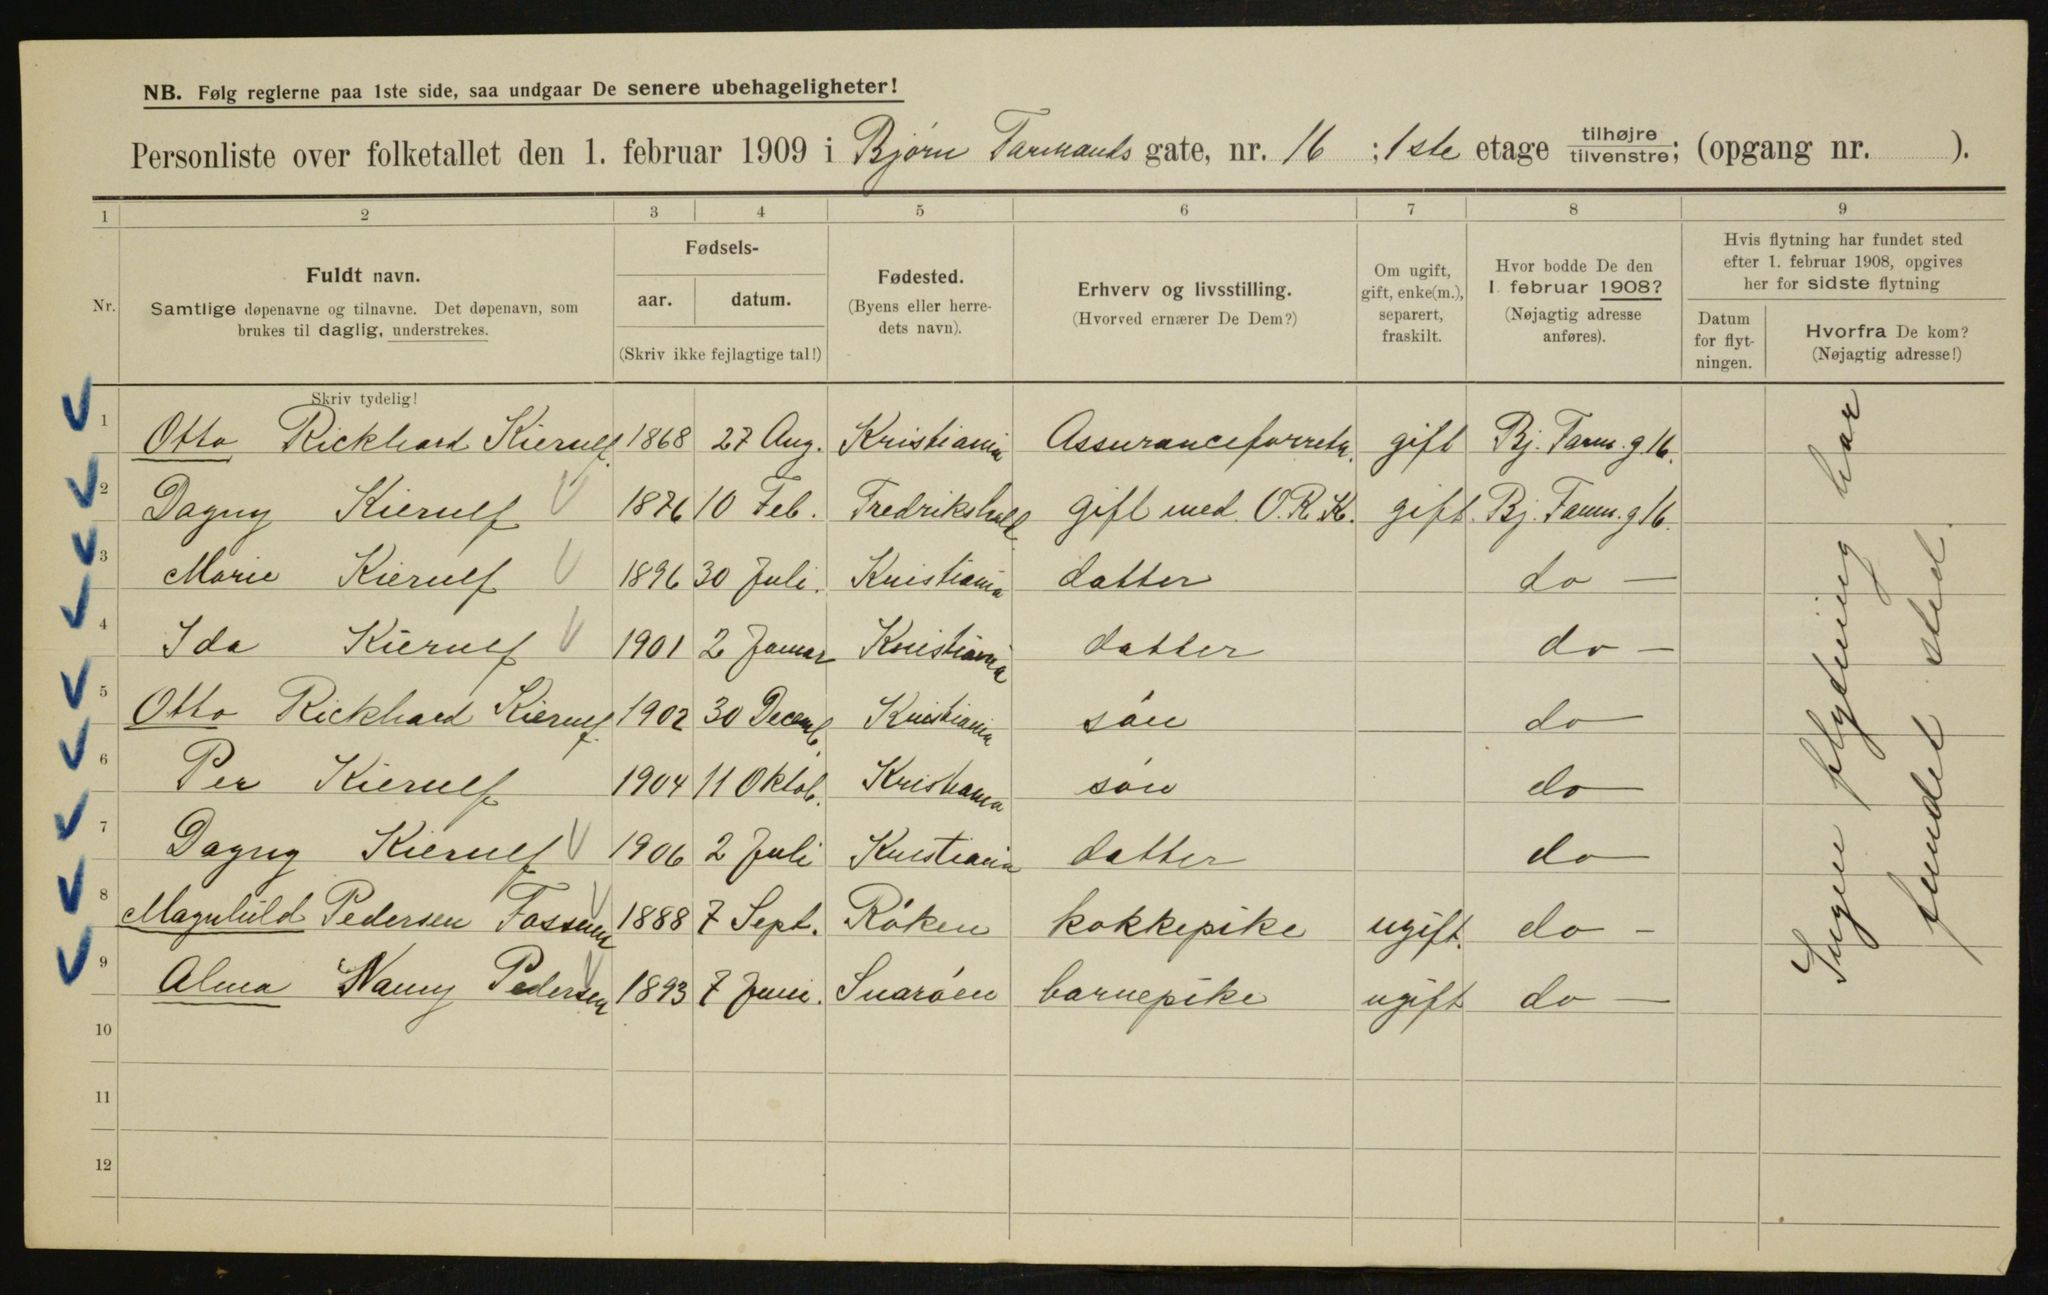 NB. Følg reglerne paa 1ste side, saa undgaar De senere ubehageligheter!
Personliste over folketallet den 1. februar 1909 i Bjørn Farmands gate, nr. 16 ; 1ste etage tilhøjre/tilvenstre; (opgang nr. ).
1 2 3 4 5 6 7 8 9
Nr.
Fuldt navn.
Samtlige døpenavne og tilnavne. Det døpenavn, som
brukes til daglig, understrekes.
Fødsels-
aar. datum.
(Skriv ikke fejlagtige tal!)
Fødested.
(Byens eller herre-
dets navn).
Erhverv og livsstilling.
(Hvorved ernærer De Dem?)
Om ugift,
gift, enke(m.),
separert,
fraskilt.
Hvor bodde De den
1. februar 1908?
(Nøjagtig adresse
anføres).
Hvis flytning har fundet sted
efter 1. februar 1908, opgives
her for sidste flytning
Datum
for flyt-
ningen.
Hvorfra De kom?
(Nøjagtig adresse!)
Skriv tydelig!
1 Otto Rickhard Kierulf. 1868 27 Aug. Kristiania Assuranceforretn. gift Bj. Farm. g 16.
2 Dagny Kierulf 1876 10 Feb. Fredrikshald. gift med O. R. K. gift. Bj. Farm. g 16.
3 Marie Kierulf 1896 30 Juli. Kristiania datter do —
4 Ida Kierulf 1901 2 Januar Kristiania datter do —
5 Otto Rickhard Kierulf. 1902 30 Decemb. Kristiania søn do
6 Per Kierulf 1904 11 Oktob. Kristiania søn do
7 Dagny Kierulf 1906 2 Juli Kristiania datter do
8 Magnhild Pedersen Fossum 1888 7 Sept. Røken kokkepike ugift. do —
9 Alma Nanny Pedersen 1893 7 Juni. Snarøen barnepike ugift do —
10
11
12
Ingen flytning har
fundet sted.